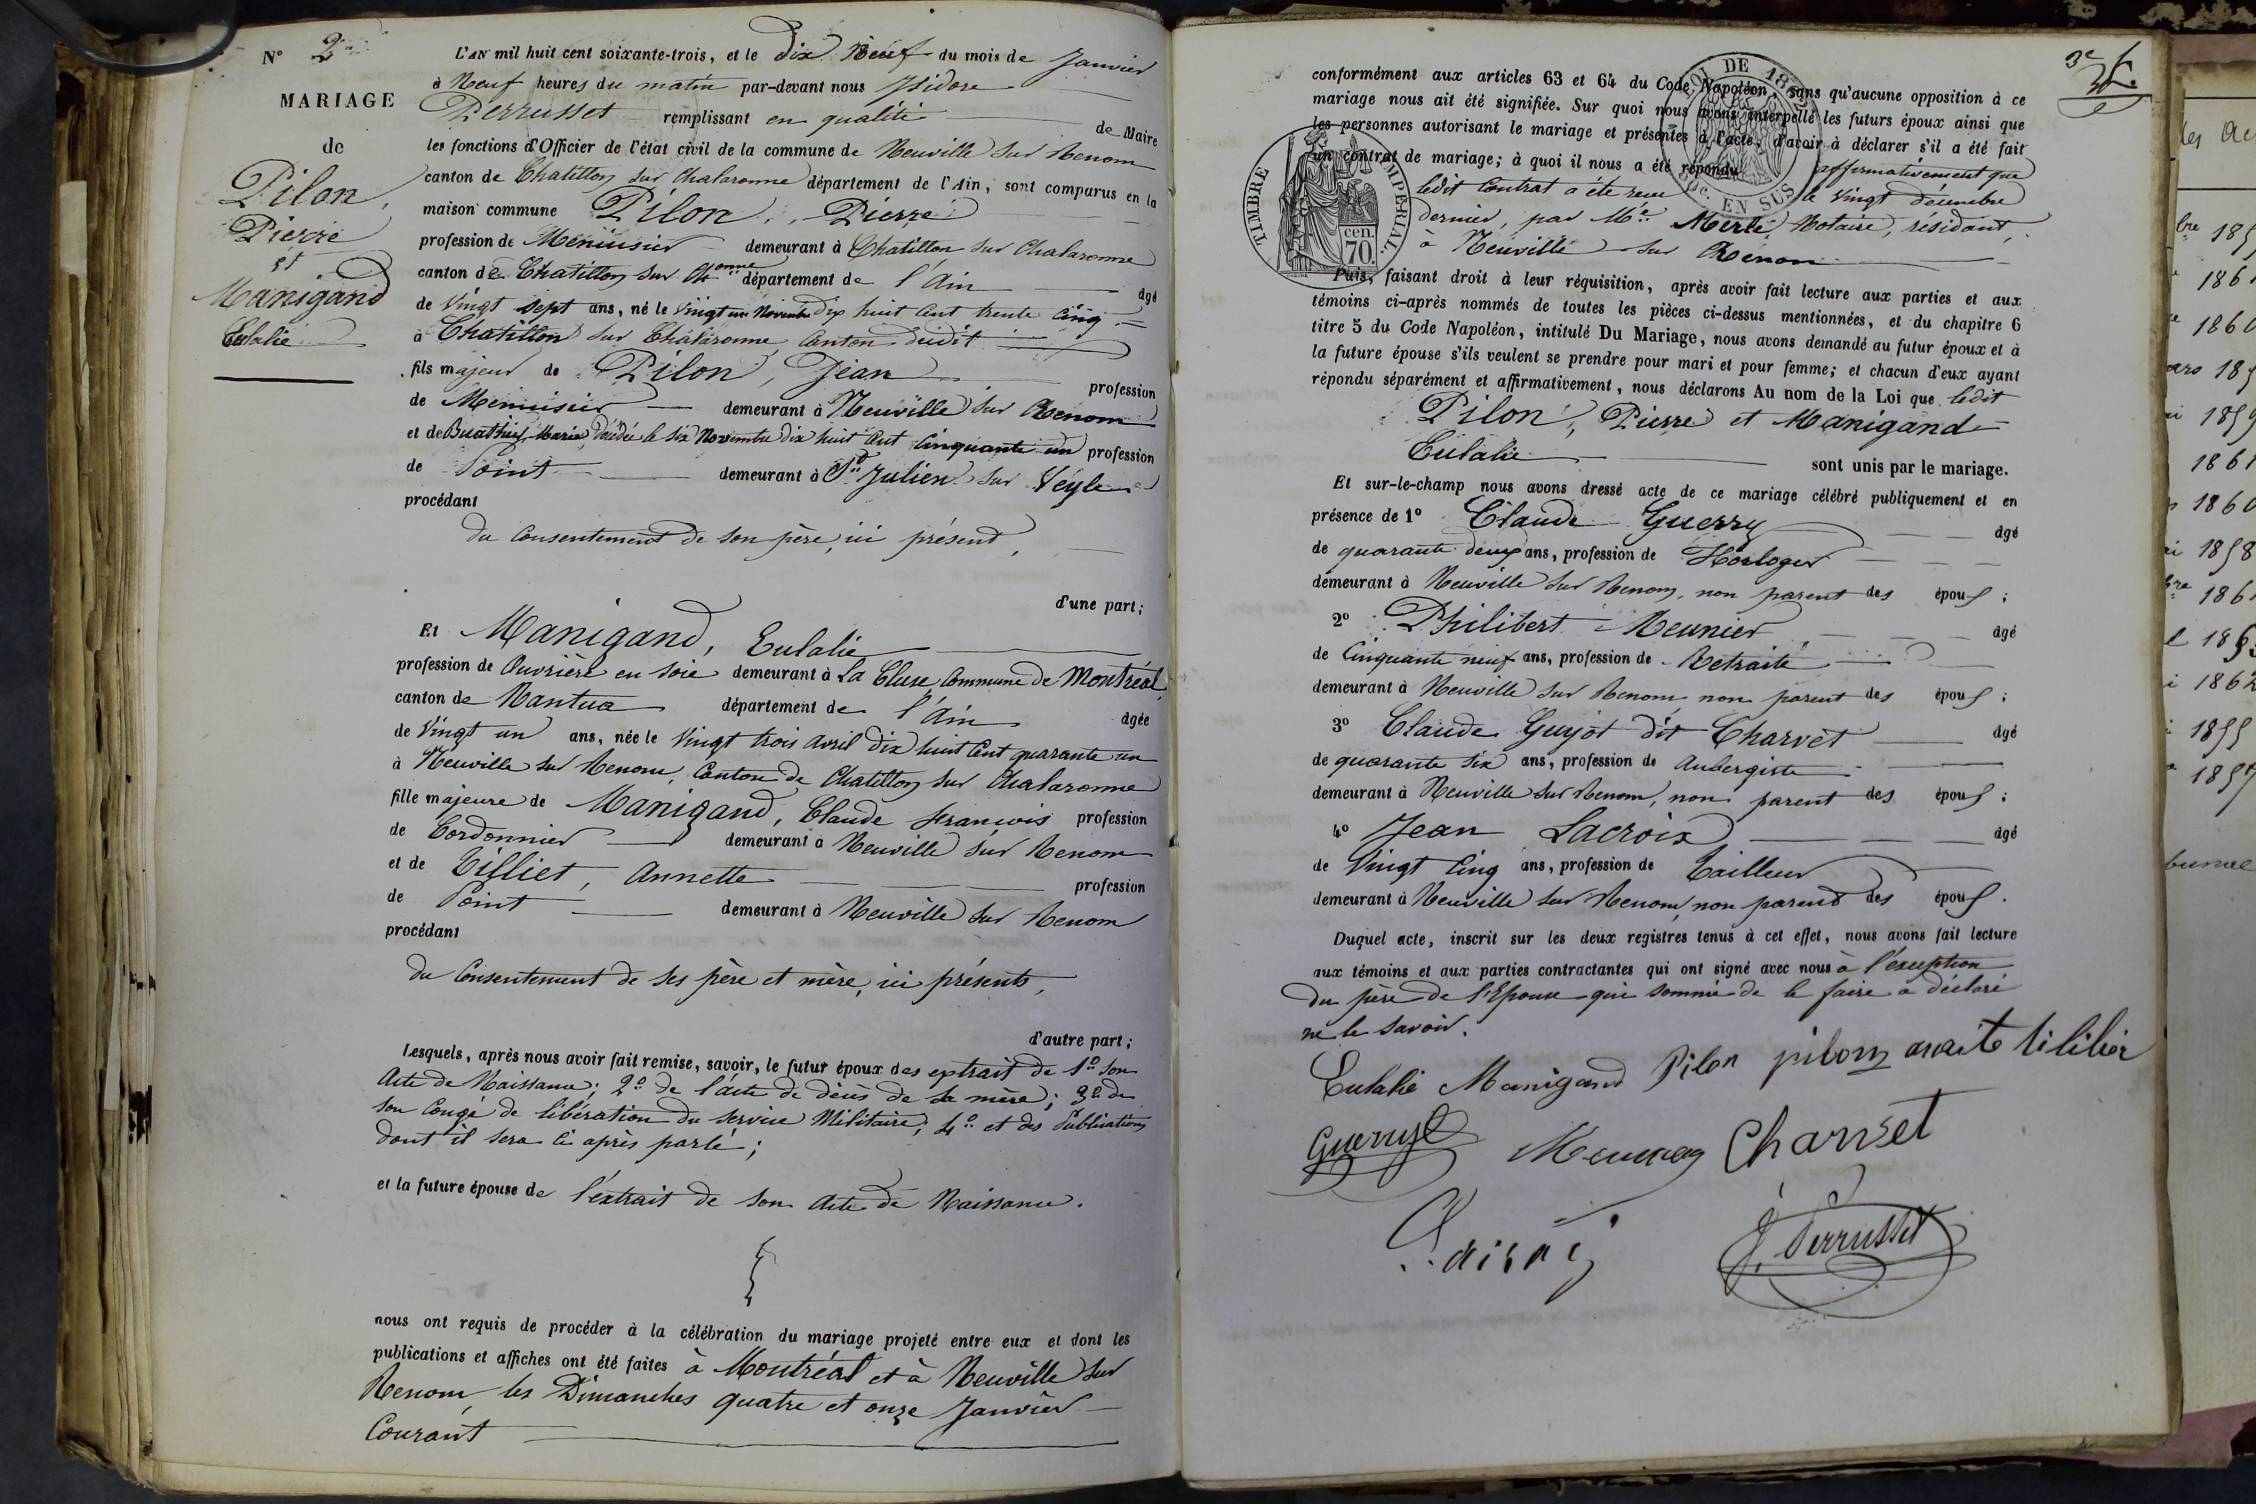 N° 2
MARIAGE
de
Pilon,
Pierre
et
Manigand
Eulalie
L'AN mil huit cent soixante-trois, et le dix Neuf du mois de Janvier
à Neuf heures du matin par-devant nous Isidore
Perrusset remplissant en qualité de Maire
les fonctions d'Officier de l'état civil de la commune de Neuville sur Renom
canton de Chatillon sur Chalaronne département de l'Ain, sont comparus en la
maison commune Pilon, Pierre
profession de Menuisier demeurant à Chatillon sur Chalaronne
canton de Chatillon sur Ch.onne département de l'Ain âgé
de Vingt sept ans, né le Vingt un Novembre dix huit Cent trente cinq
à Chatillon sur Chalaronne Canton dudit
fils majeur de Pilon, Jean profession
de Menuisier demeurant à Neuville sur Renom
et de Buathier Marie, décédée le six Novembre dix huit Cent Cinquante un profession
de Point demeurant à St. Julien sur Veyle
procédant
du Consentement de son père, ici présent,
d'une part;
Et Manigand, Eulalie
profession de Ouvrière en soie demeurant à La Cluse, Commune de Montréal,
canton de Nantua département de l'Ain âgée
de Vingt un ans, née le Vingt trois avril dix huit Cent quarante un
à Neuville sur Renom, Canton de Chatillon sur Chalaronne
fille majeure de Manigand, Claude François profession
de Cordonnier demeurant à Neuville sur Renom
et de Tilliet, Annette profession
de Point demeurant à Neuville sur Renom
procédant
du Consentement de ses père et mère, ici présents,
d'autre part;
Lesquels, après nous avoir fait remise, savoir, le futur époux des extrait de 1° son
Acte de Naissance; 2° de l'acte de décès de sa mère; 3° de
son Congé de libération du service Militaire; 4° et des Publications
dont il sera ci après parlé;
et la future épouse de l'extrait de son Acte de Naissance.
nous ont requis de procéder à la célébration du mariage projeté entre eux et dont les
publications et affiches ont été faites à Montréal et à Neuville sur
Renom, les Dimanches quatre et onze Janvier
Courant
conformément aux articles 63 et 64 du Code Napoléon, sans qu'aucune opposition à ce
mariage nous ait été signifiée. Sur quoi nous avons interpellé les futurs époux ainsi que
les personnes autorisant le mariage et présentes à l'acte, d'avoir à déclarer s'il a été fait
un contrat de mariage; à quoi il nous a été répondu affirmativement que
ledit Contrat a été reçu le Vingt décembre
dernier, par Me. Merle Notaire, résidant,
à Neuville sur Renom
LOI DE 1862
EN SUS
TIMBRE IMPERIAL
cen.
70.
Puis, faisant droit à leur réquisition, après avoir fait lecture aux parties et aux
témoins ci-après nommés de toutes les pièces ci-dessus mentionnées, et du chapitre 6
titre 5 du Code Napoléon, intitulé Du Mariage, nous avons demandé au futur époux et à
la future épouse s'ils veulent se prendre pour mari et pour femme; et chacun d'eux ayant
répondu séparément et affirmativement, nous déclarons Au nom de la Loi que ledit
Pilon, Pierre et Manigand
Eulalie sont unis par le mariage.
Et sur-le-champ nous avons dressé acte de ce mariage célébré publiquement et en
présence de 1° Claude Guerry âgé
de quarante deux ans, profession de Horloger
demeurant à Neuville sur Renom, non parent des époux;
2° Philibert Meunier âgé
de Cinquante neuf ans, profession de Retraité
demeurant à Neuville sur Renom non parent des époux;
3° Claude Guyot dit Charvet âgé
de quarante six ans, profession de Aubergiste
demeurant à Neuville sur Renom, non parent des époux;
4° Jean Lacroix âgé
de Vingt Cinq ans, profession de Tailleur
demeurant à Neuville sur Renom, non parent des époux.
Duquel acte, inscrit sur les deux registres tenus à cet effet, nous avons fait lecture
aux témoins et aux parties contractantes qui ont signé avec nous à l'exception
du père de l'Epouse qui sommé de le faire a déclaré
ne le savoir.
Eulalie Manigand Pilon pilon
Guerry Charvet
J. Perrusset